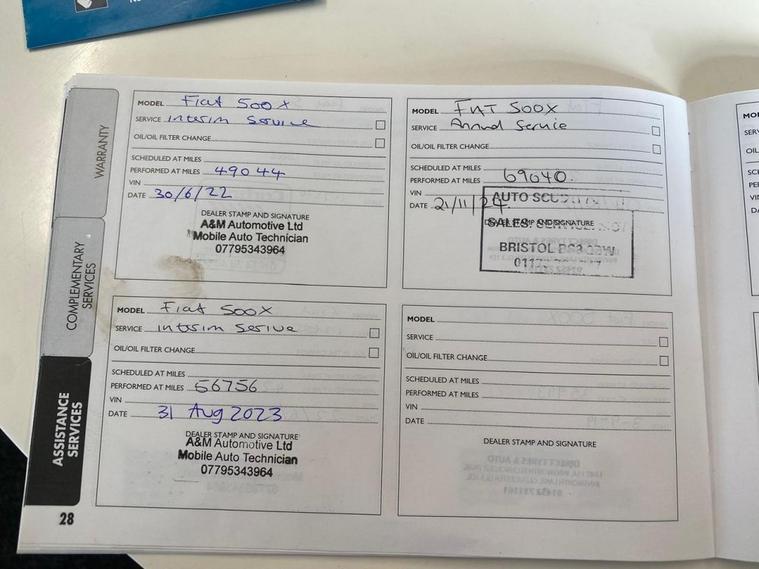 WARRANTY
COMPLEMENTARY
SERVICES
ASSISTANCE
SERVICES
28
MODEL Fiat 500x
SERVICE interim Service
OIL/OIL FILTER CHANGE
SCHEDULED AT MILES
PERFORMED AT MILES 49044
VIN
DATE 30/6/22
DEALER STAMP AND SIGNATURE
A&M Automotive Ltd
Mobile Auto Technician
07795343964
MODEL FIAT 500X
SERVICE Annual Service
OIL/OIL FILTER CHANGE
SCHEDULED AT MILES
PERFORMED AT MILES 69040.
VIN
DATE 21/11/24.
DEALER STAMP AND SIGNATURE
AUTO
SALES, SERVICE
BRISTOL
MODEL Fiat 500x
SERVICE interim Serive
OIL/OIL FILTER CHANGE
SCHEDULED AT MILES
PERFORMED AT MILES 56756
VIN
DATE 31 Aug 2023
DEALER STAMP AND SIGNATURE
A&M Automotive Ltd
Mobile Auto Technician
07795343964
MODEL
SERVICE
OIL/OIL FILTER CHANGE
SCHEDULED AT MILES
PERFORMED AT MILES
VIN
DATE
DEALER STAMP AND SIGNATURE